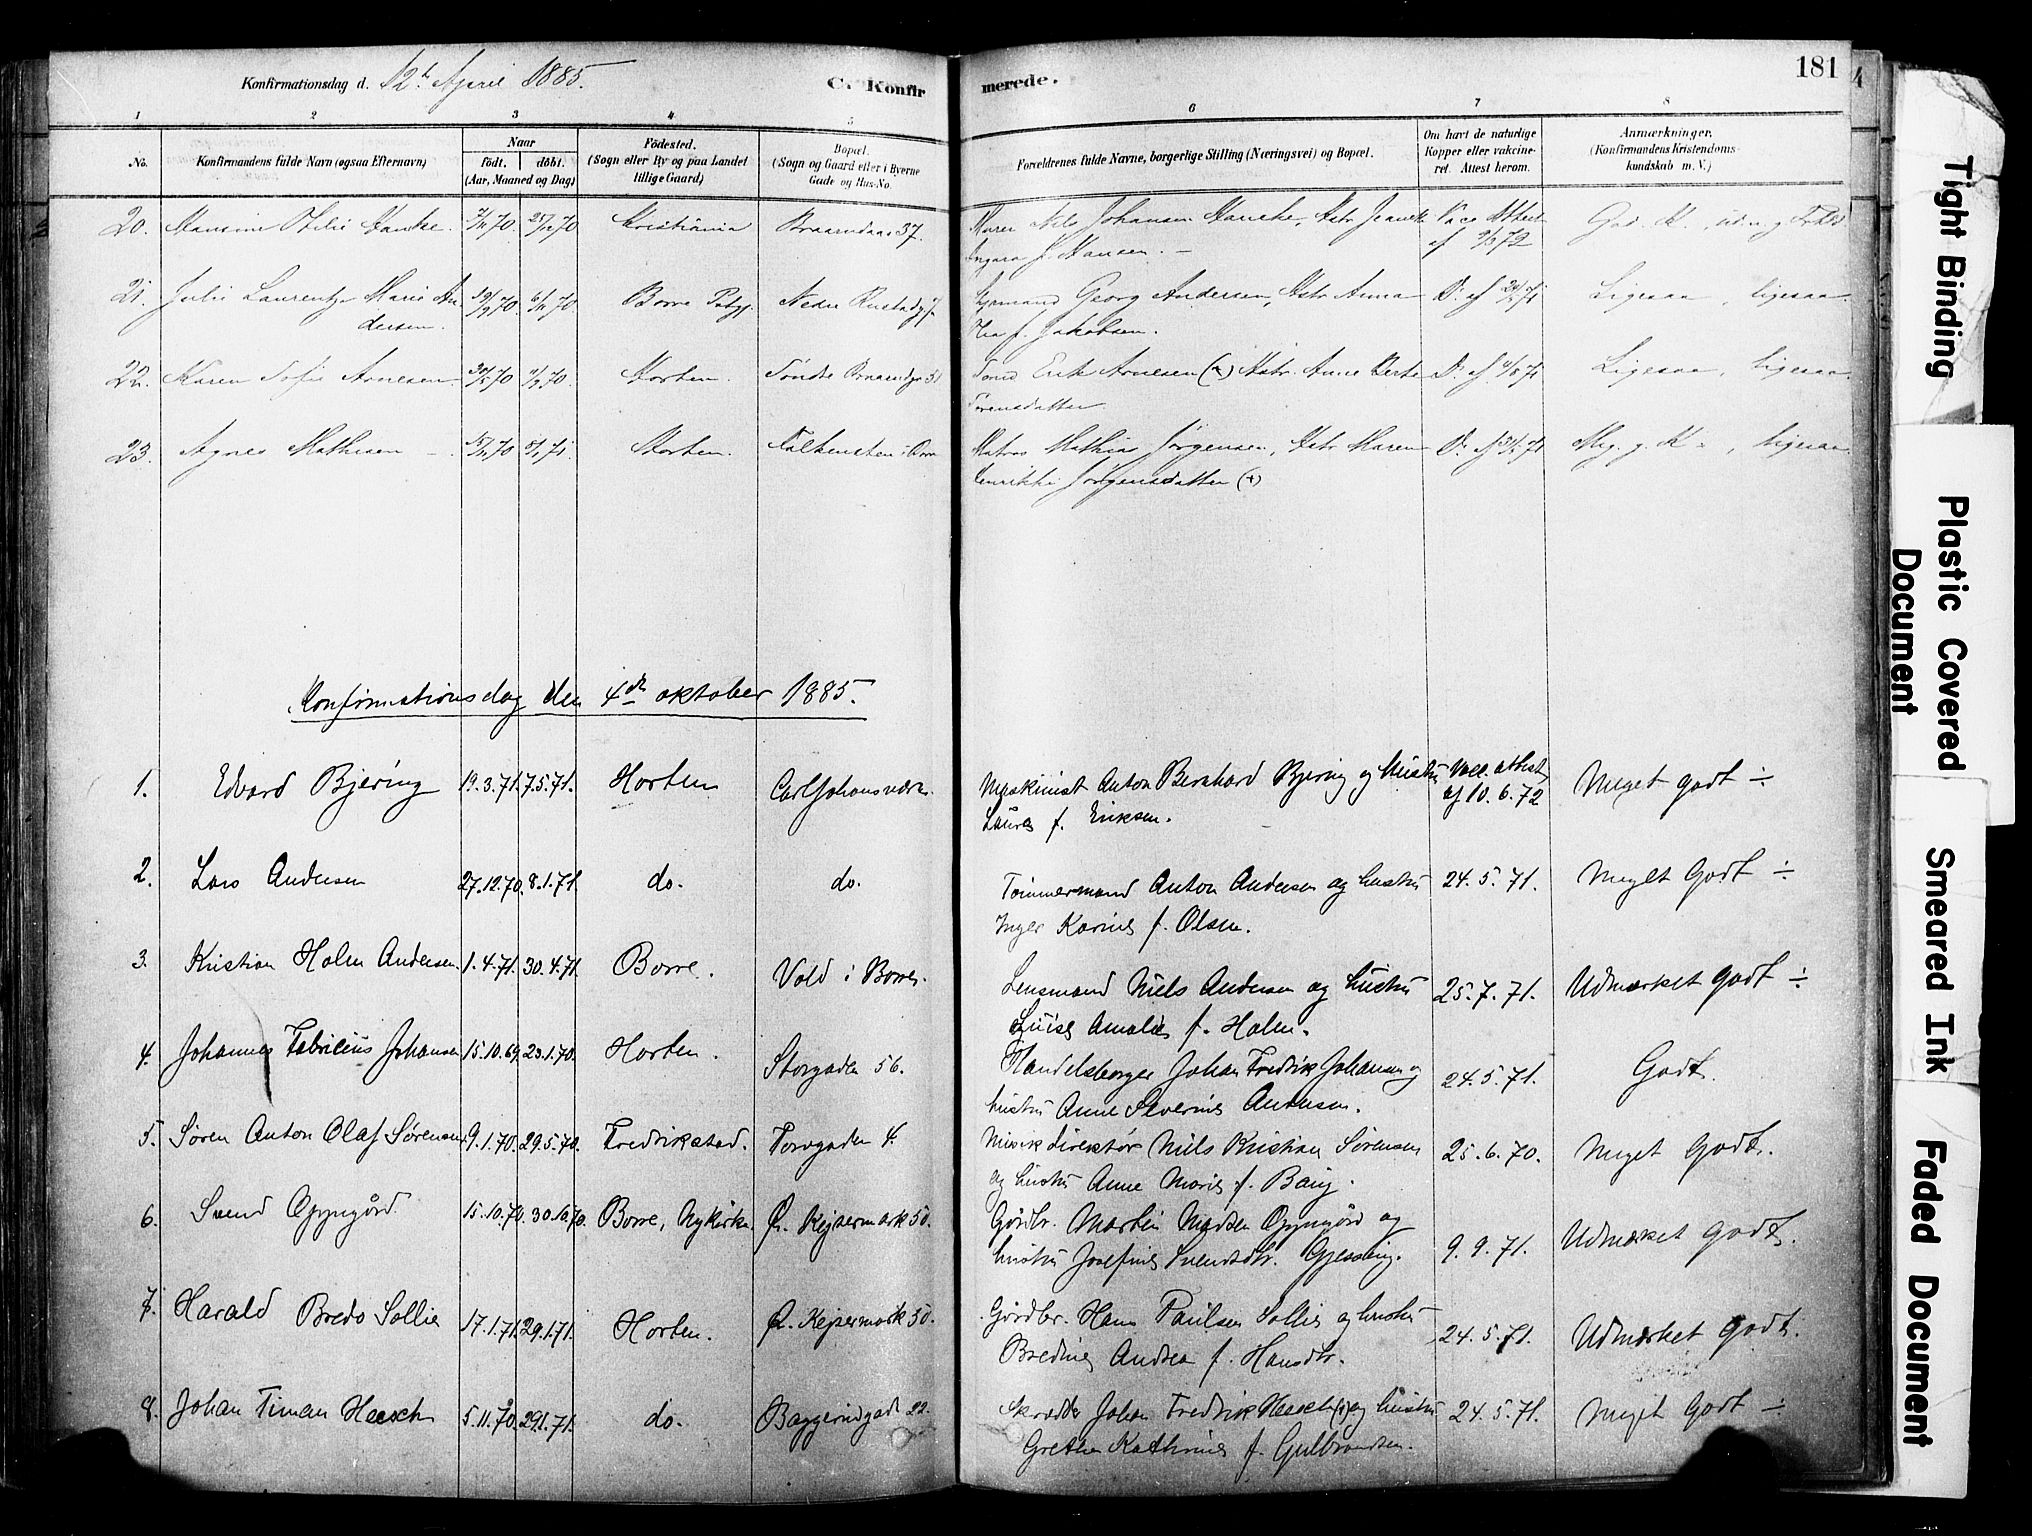 Konfirmationsdag d. 12te April 1885.
C. Konfirmerede.
181
1 2 3 4 5 6 7 8
No.
Konfirmandens fulde Navn (ogsaa Efternavn)
Naar
födt. döbt.
(Aar, Maaned og Dag)
Födested.
(Sogn eller By og paa Landet
tillige Gaard)
Bopæl.
(Sogn og Gaard eller i Byerne
Gade og Hus-No.
Forældrenes fulde Navne, borgerlige Stilling (Næringsvei) og Bopæl.
Om havt de naturlige
Kopper eller vakcine-
ret. Attest herom.
Anmærkninger.
(Konfirmandens Kristendoms-
kundskab m. V.)
20. Hansine Otilie Hanche. 70 70 Kristiania 37. Murer Nils Johansen Hanche, Hstr Jeanette Vacc Attest God. K.
f. Hansen. af 72
21. Julie Laurentze Marie An- 70 70 Borre Georg Andersen, Hstr Anna D. af 71 Ligesaa, ligesaa.
dersen. f. Jakobsen.
22. Karen Sofie Arnesen 70 70 Horten. Söndre Erik Arnesen (+) Hstr. Anne Berte D. af 71 Ligesaa, ligesaa.
Sörensdatter
23. Agnes Mathisen 70 71. Horten. Falkensten i Borre Matros Mathias Jörgensen, Hstr Maren D. af 71 Meg. g. K, ligesaa
Henrikke Jörgensdatter (+)
Konfirmationsdag den 4de oktober 1885.
1. Edvard Bjering 19.3.71. 7.5.71. Horten Carl Johansværn. Maskinist Anton Bernhard Bjering og hustru Vacc. attest Meget godt ÷
Laura f. Eriksen. af 10.6.72
2. Lars Andersen 27.12.70. 8.1.71. do. do. Tømmermand Anton Andersen og hustru 24.5.71. Meget Godt ÷
Inger Karine f. Olsen.
3. Kristian Holm Andersen. 1.4.71. 30.4.71. Borre. Vold i Borre. Lensmand Niels Andersen og hustru 25.7.71. Udmærket godt ÷
Louise Amalie f. Holm.
4. Johannes Fabricius Johansen 15.10.69. 23.1.70. Horten. Storgaden 56. Handelsborger Johan Fredrik Johansen og 24.5.71. Godt.
hustru Anne Severine Andersen.
5. Søren Anton Olaf Sørensen 9.1.70. 29.5.70. Fredrikstad. Torvgaden 4. Musikdirektør Niels Kristian Sørensen 25.6.70. Meget Godt.
og hustru Anne Marie f. Bang.
6. Svend Oppegård 15.10.70. 30.10.70. Borre, Nykirke Ø. Kejsermark 50. Gårdbr. Martin Madsen Oppegård og 9.9.71. Udmærket godt.
hustru Josefine Svendsdtr. Gjessing.
7. Harald Bredo Sollie 17.1.71. 29.1.71. Horten. Ø. Kejsermark 50. Gårdbr. Hans Paulsen Sollie og hustru 24.5.71. Udmærket godt.
Bredine Andrea f. Hansdtr.
8. Johan Timan Heesch 5.11.70. 29.1.71. do. Baggerudgade 22. Skrædder Johan Fredrik Heesch (+) og hustru 24.5.71. Meget Godt ÷
Grethe Kathrine f. Gulbrandsen.
Tight Binding
Plastic Covered
Document
Smeared Ink
Faded Document